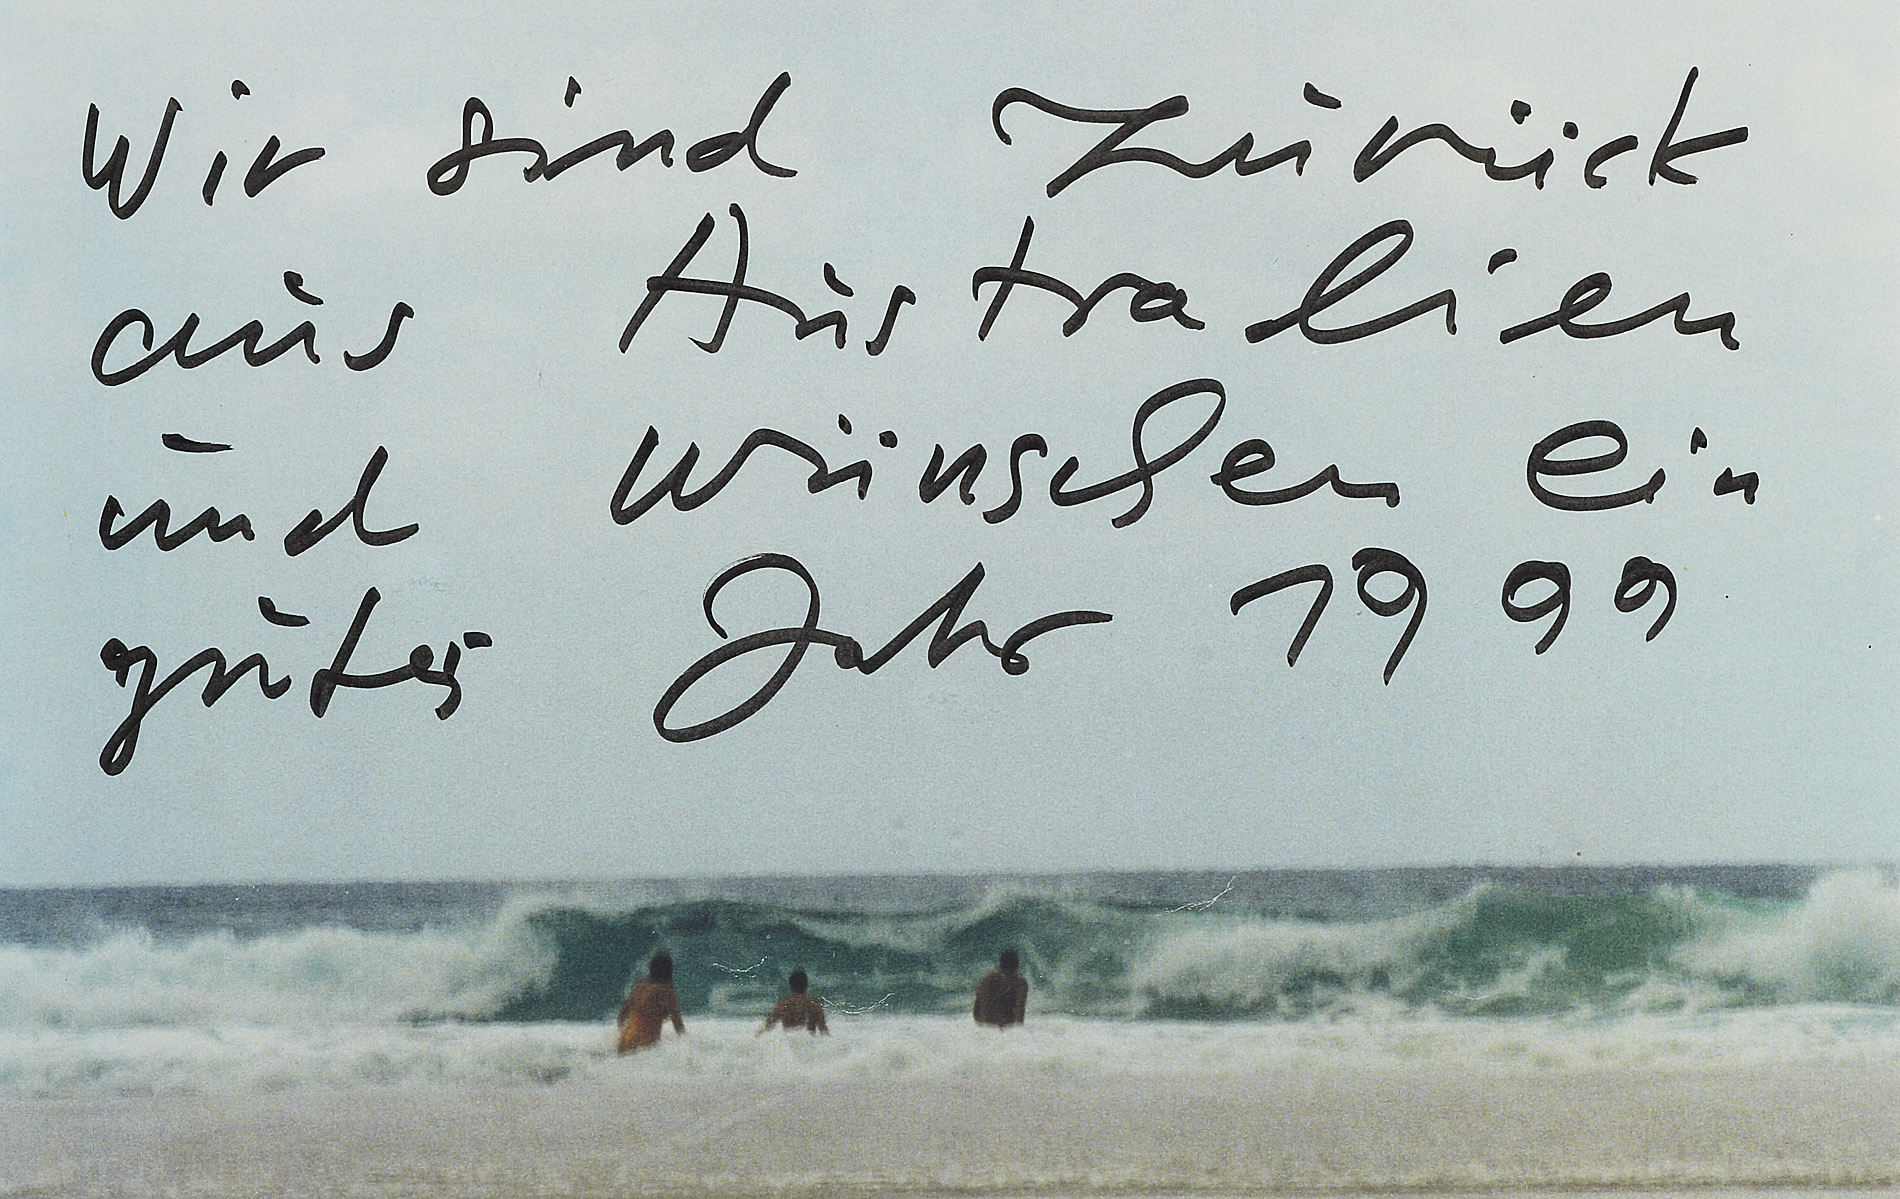 Wir sind zurück
aus Australien
und wünschen ein
gutes Jahr 1999